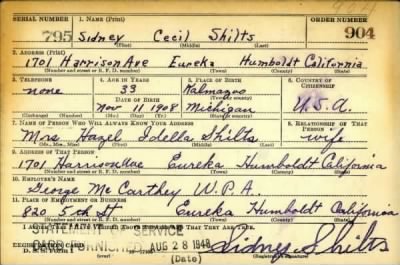 904
SERIAL NUMBER 1. NAME (Print) ORDER NUMBER
795 Sidney Cecil Shilts 904
(First) (Middle) (Last)
2. ADDRESS (Print)
1701 Harrison Ave Eureka Humboldt California
(Number and street or R. F. D. number) (Town) (County) (State)
3. TELEPHONE 4. AGE IN YEARS 5. PLACE OF BIRTH 6. COUNTRY OF CITIZENSHIP
none 33 Kalmazoo U.S.A.
DATE OF BIRTH (Town or county)
Nov 11 1908 Michigan
(Exchange) (Number) (Mo.) (Day) (Yr.) (State or country)
7. NAME OF PERSON WHO WILL ALWAYS KNOW YOUR ADDRESS 8. RELATIONSHIP OF THAT PERSON
Mrs Hazel Idella Shilts wife
(Mr., Mrs., Miss) (First) (Middle) (Last)
9. ADDRESS OF THAT PERSON
1701 Harrison Ave Eureka Humboldt California
(Number and street or R. F. D. number) (Town) (County) (State)
10. EMPLOYER'S NAME
George McCarthey W.P.A.
11. PLACE OF EMPLOYMENT OR BUSINESS
820 5th St Eureka Humboldt California
(Number and street or R. F. D. number) (Town) (County) (State)
THAT THEY ARE TRUE.
STATEMENT OF SERVICE
FURNISHED AUG 28 1948
REGISTRATION CARD Sidney Shilts
(Date)